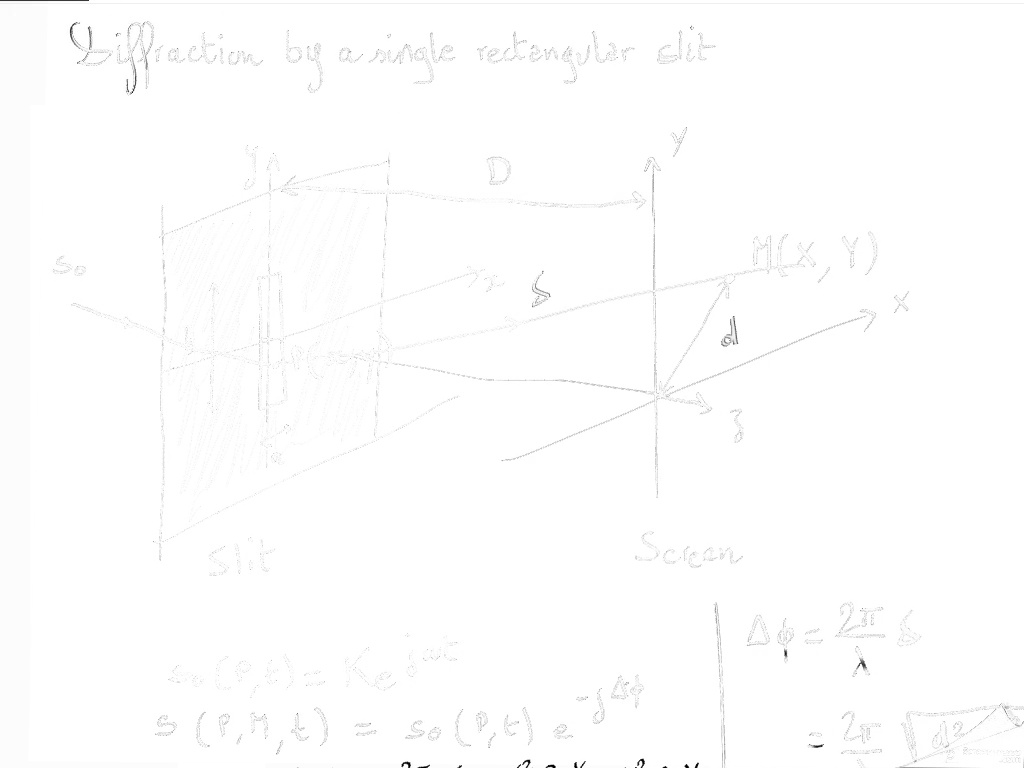 Diffraction by a single rectangular slit
y
D
Y
s₀
x
δ
M(X, Y)
X
b
P(x, y)
d
a
z
Slit
Screen
Δφ = 2π/λ δ
s₀(P,t) = K e^jωt
s(P,M,t) = s₀(P,t) e^-jΔφ
= 2π/λ √d²